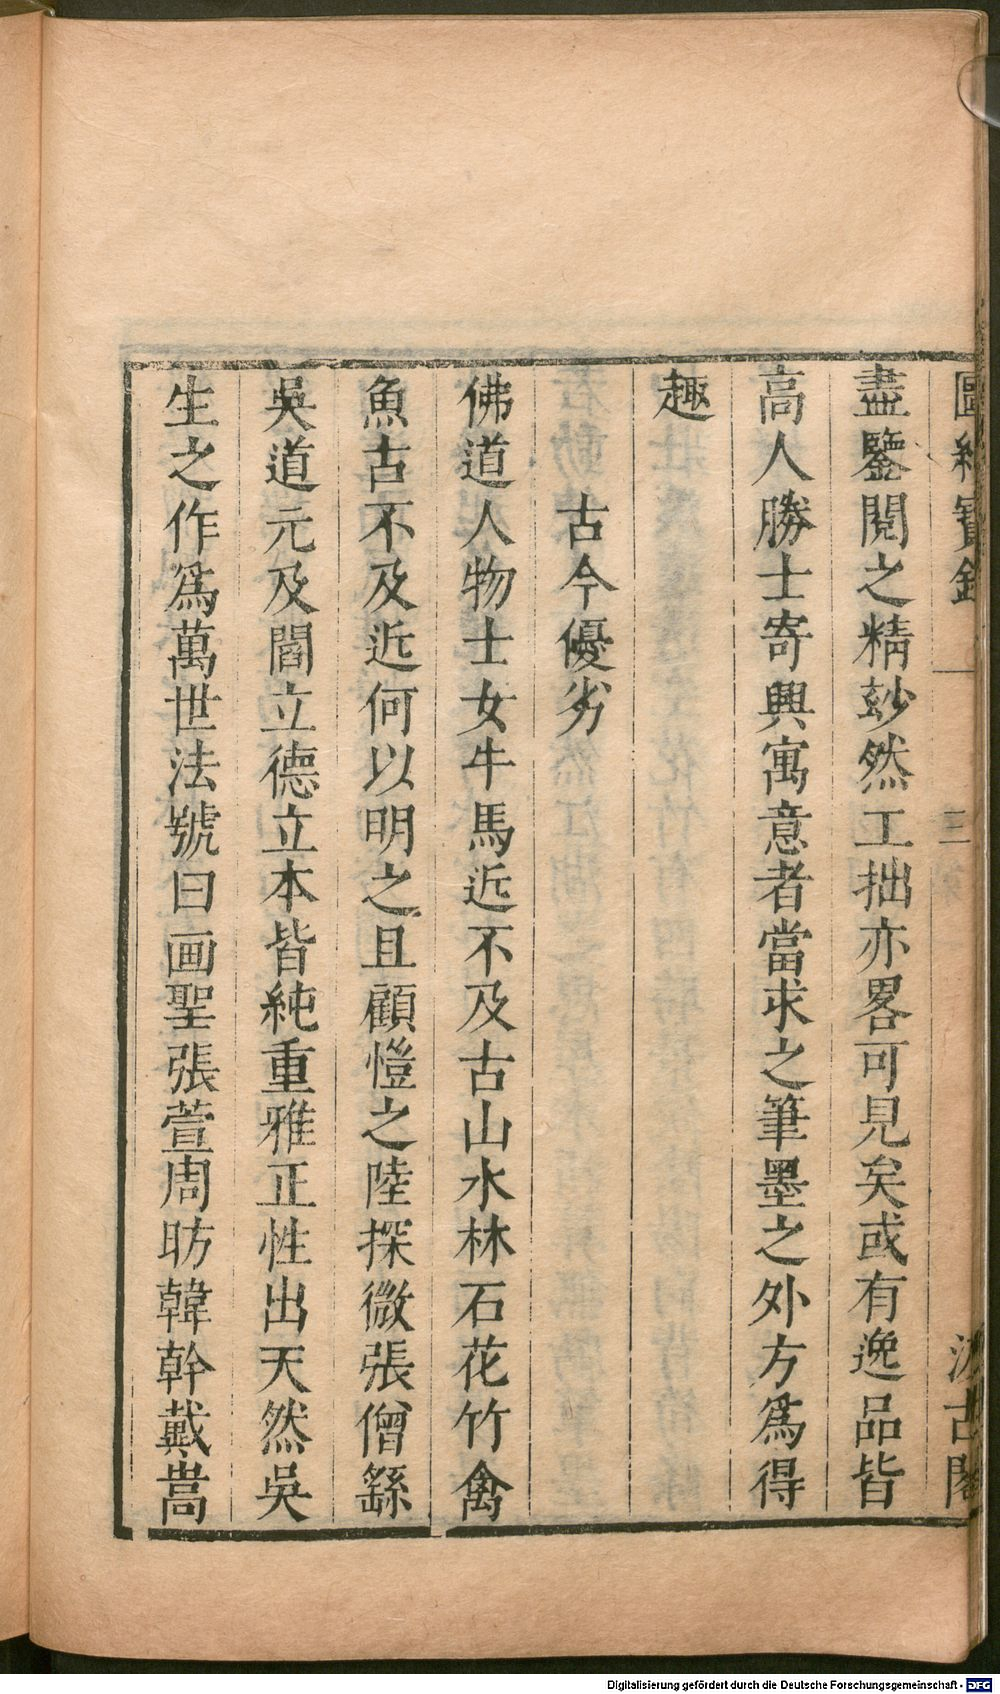 圖繪寶鉴 一 三 汲古閣
盡鑒閱之精玅然工拙亦畧可見矣或有逸品皆
高人勝士寄興寓意者當求之筆墨之外方爲得
趣
古今優劣
佛道人物士女牛馬近不及古山水林石花竹禽
魚古不及近何以明之且顧愷之陸探微張僧繇
吳道元及閻立德立本皆純重雅正性出天然吳
生之作爲萬世法號曰画聖張萱周昉韓幹戴嵩
Digitalisierung gefördert durch die Deutsche Forschungsgemeinschaft - DFG